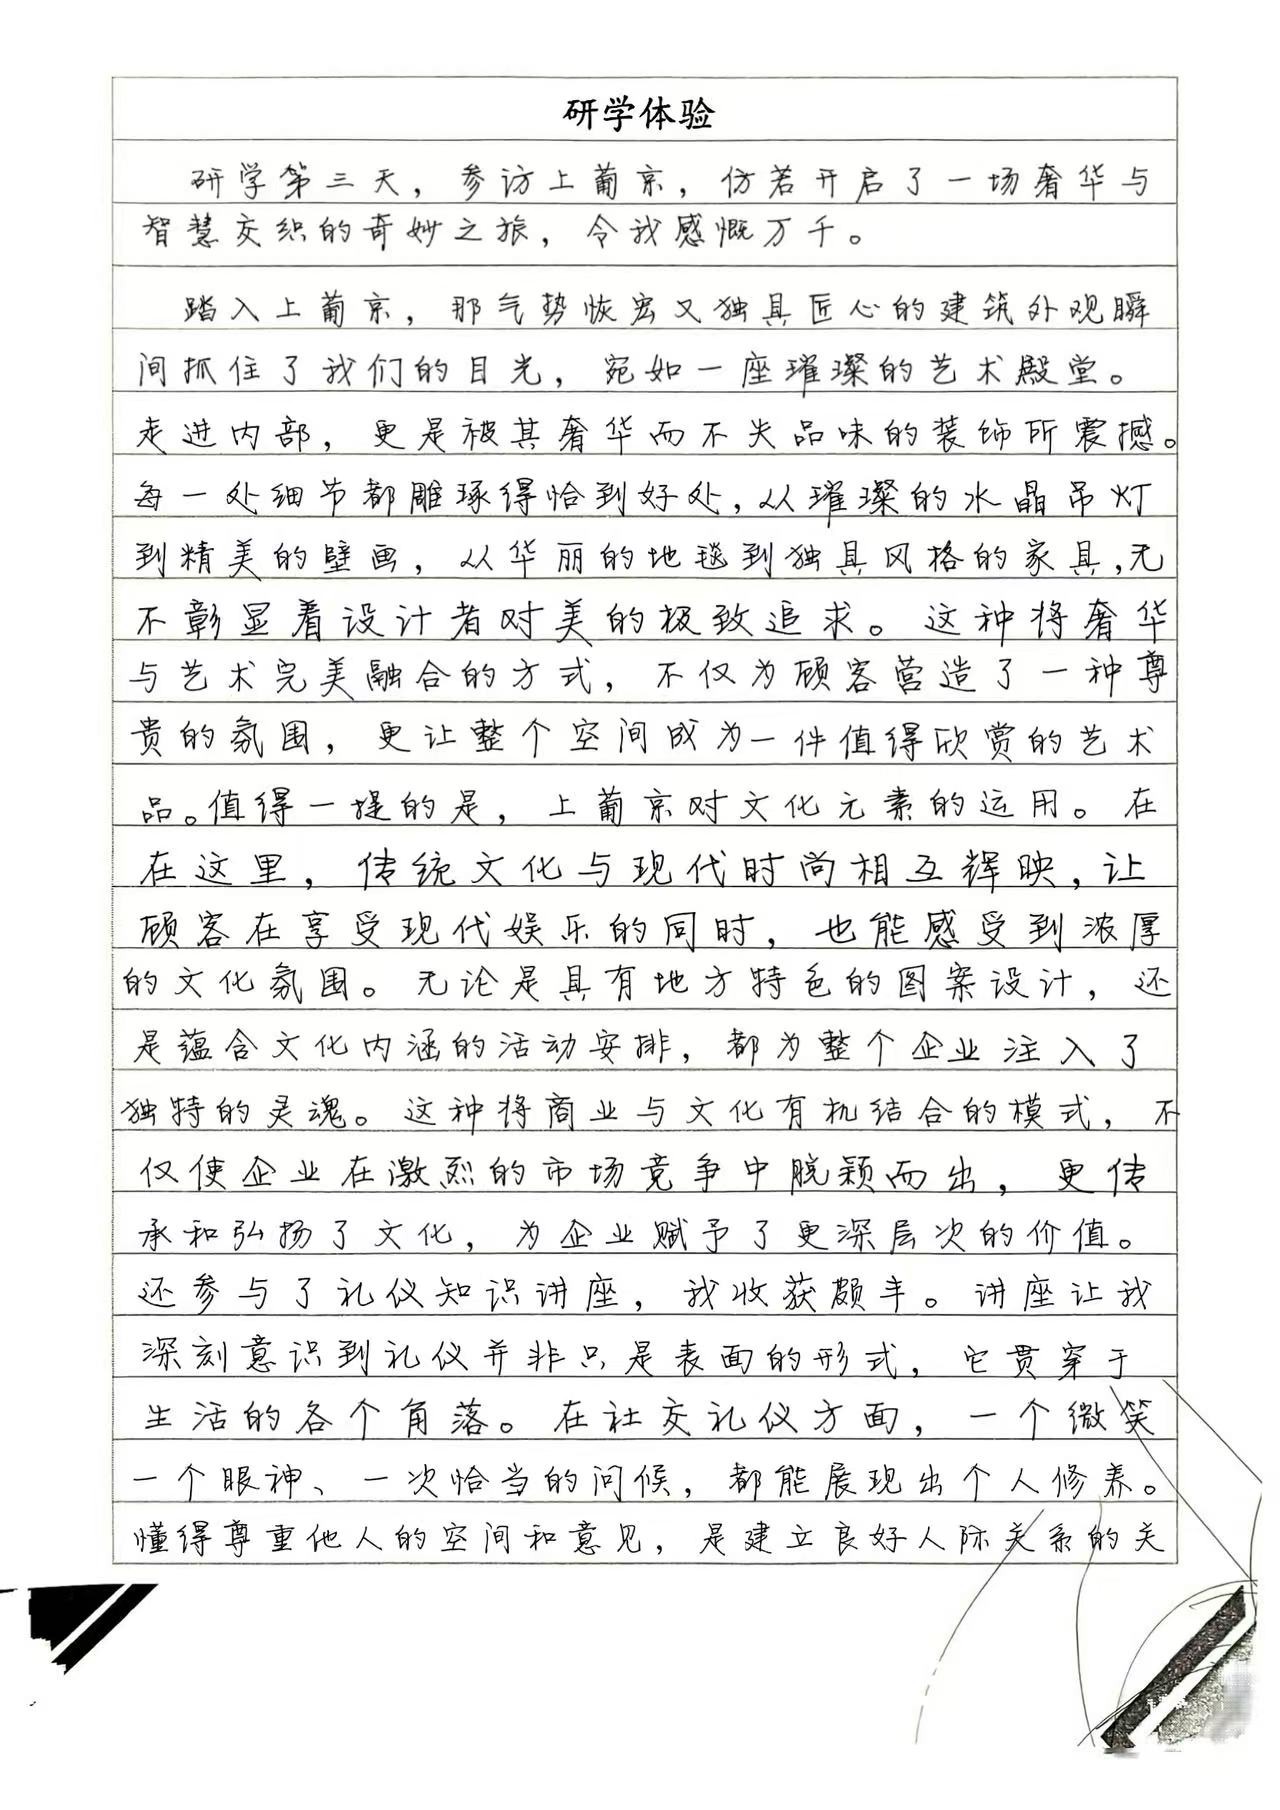 研学体验
研学第三天，参访上葡京，仿若开启了一场奢华与
智慧交织的奇妙之旅，令我感慨万千。
踏入上葡京，那气势恢宏又独具匠心的建筑外观瞬
间抓住了我们的目光，宛如一座璀璨的艺术殿堂。
走进内部，更是被其奢华而不失品味的装饰所震撼。
每一处细节都雕琢得恰到好处，从璀璨的水晶吊灯
到精美的壁画，从华丽的地毯到独具风格的家具，无
不彰显着设计者对美的极致追求。这种将奢华
与艺术完美融合的方式，不仅为顾客营造了一种尊
贵的氛围，更让整个空间成为一件值得欣赏的艺术
品。值得一提的是，上葡京对文化元素的运用。在
在这里，传统文化与现代时尚相互辉映，让
顾客在享受现代娱乐的同时，也能感受到浓厚
的文化氛围。无论是具有地方特色的图案设计，还
是蕴含文化内涵的活动安排，都为整个企业注入了
独特的灵魂。这种将商业与文化有机结合的模式，不
仅使企业在激烈的市场竞争中脱颖而出，更传
承和弘扬了文化，为企业赋予了更深层次的价值。
还参与了礼仪知识讲座，我收获颇丰。讲座让我
深刻意识到礼仪并非只是表面的形式，它贯穿于
生活的各个角落。在社交礼仪方面，一个微笑
一个眼神、一次恰当的问候，都能展现出个人修养。
懂得尊重他人的空间和意见，是建立良好人际关系的关